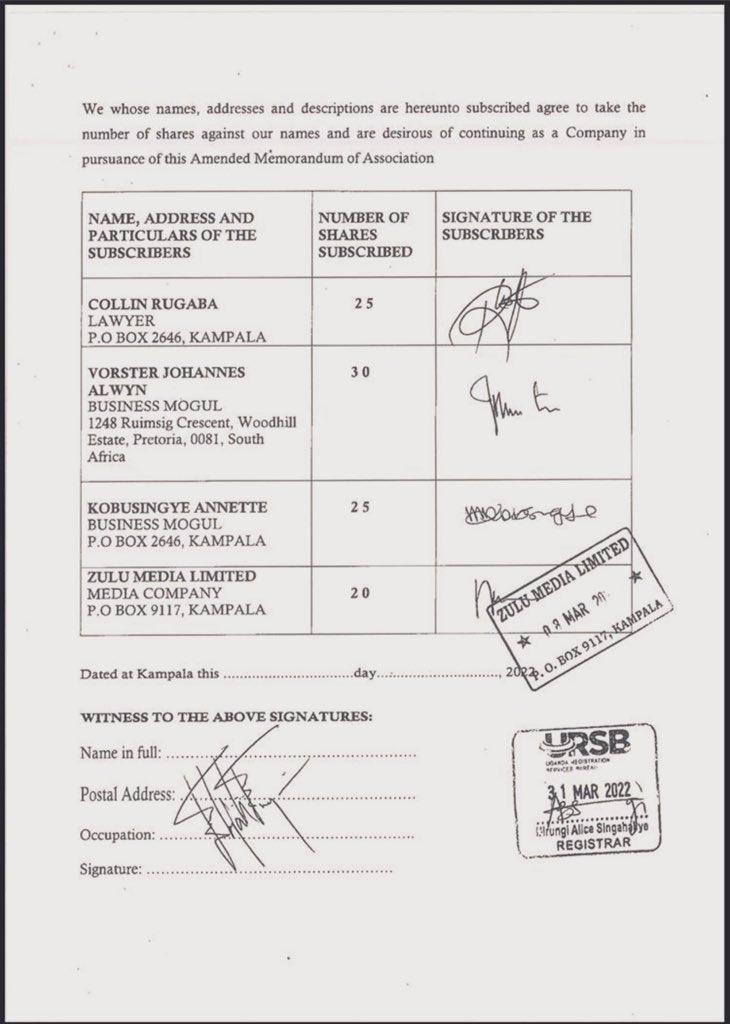 We whose names, addresses and descriptions are hereunto subscribed agree to take the
number of shares against our names and are desirous of continuing as a Company in
pursuance of this Amended Memorandum of Association
NAME, ADDRESS AND
PARTICULARS OF THE
SUBSCRIBERS
NUMBER OF
SHARES
SUBSCRIBED
SIGNATURE OF THE
SUBSCRIBERS
COLLIN RUGABA
LAWYER
P.O BOX 2646, KAMPALA
25
VORSTER JOHANNES
ALWYN
BUSINESS MOGUL
1248 Ruimsig Crescent, Woodhill
Estate, Pretoria, 0081, South
Africa
30
KOBUSINGYE ANNETTE
BUSINESS MOGUL
P.O BOX 2646, KAMPALA
25
ZULU MEDIA LIMITED
MEDIA COMPANY
P.O BOX 9117, KAMPALA
20
ZULU MEDIA LIMITED
MAR
P. O. BOX 9117, KAMPALA
Dated at Kampala this ................................day..............................., 2022
WITNESS TO THE ABOVE SIGNATURES:
Name in full: ................................................
Postal Address: ................................................
Occupation: ................................................
Signature: ................................................
URSB
UGANDA REGISTRATION
SERVICES BUREAU
31 MAR 2022
Alice
REGISTRAR